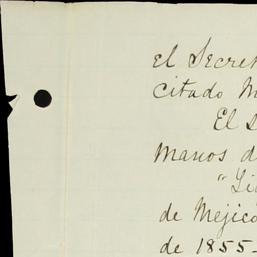 el Secret
citado M
El S
manos d
"Li
de Mejico
de 1855-